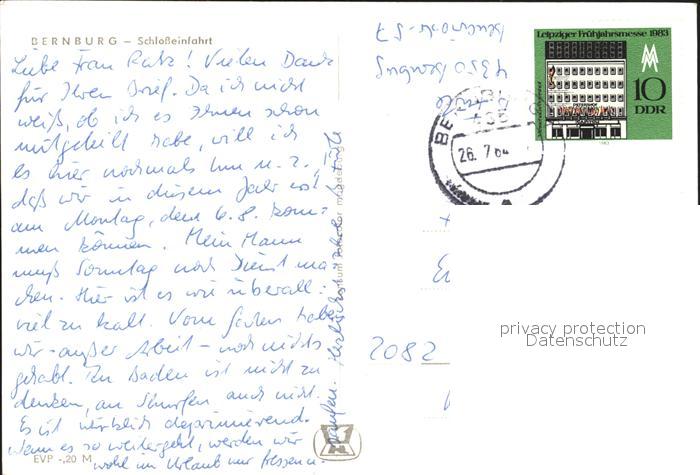 BERNBURG – Schloßeinfahrt
Liebe Frau Ratz! Vielen Dank
für Ihren Brief. Da ich nicht
weiß, ob ich es Ihnen schon
mitgeteilt habe, will ich
es hier nochmals tun u. z.,
daß wir in diesem Jahr erst
am Montag, dem 6.8. kom-
men können. Mein Mann
muß Sonntag noch Dienst ma
chen. Hier ist es wie überall:
viel zu kalt. Vom Garten habe
wir - außer Arbeit - noch nichts
gehabt. An Baden ist nicht zu
denken, an Schwofen auch nicht.
Es ist wirklich deprimierend.
Wenn es so weitergeht, werden wir
wohl im Urlaub nur fressen u.
saufen. Herzlichst
EVP -,20 M
4350 Bernburg
Leipziger Frühjahrsmesse 1983
MM
10
DDR
1983
BERNBURG
435
26.7.84
2082
privacy protection
Datenschutz